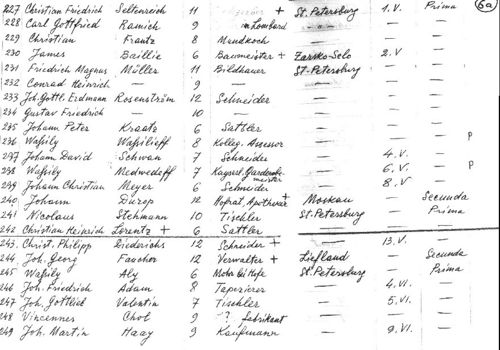 227 Christian Friedrich Seltenreich 11 + St. Petersburg 1. V. Prima 6a
228 Carl Gottfried Ramich 9 Lombard — — —
229 Christian Frantz 8 Mundkoch — — —
230 James Baillie 6 Baumeister + Zarsko-Selo 2. V —
231 Friedrich Magnus Müller 11 Bildhauer St-Petersburg — —
232 Conrad Heinrich — 9 — — — —
233 Joh. Gottl. Erdmann Rosenström 12 Schneider — — —
234 Gustav Friedrich — 10 — — — —
235 Johann Peter Kraatz 6 Sattler — — —
236 Waßily Waßilieff 8 Kolleg. Assessor — — — P
237 Johann David Schwan 7 Schneider — 4. V. —
238 Waßily Medwedeff 7 Kayserl. Garderobemeister — 6. V. — P
239 Johann Christian Meyer 6 Schneider — 8. V —
240 Johann Dürop 12 Hofrat, Apotheker + Moskau — Secunda
241 Nicolaus Stehmann 10 Tischler St. Petersburg — Prima
242 Christian Heinrich Lorentz + 6 Sattler — — —
243. Christ. Philipp Giederichs 12 Schneider + — 13. V. —
244 Joh. Georg Faucher 12 Verwalter + Liefland — Secunda
245 Waßily Aly 6 Mohr bei Hofe St. Petersburg — Prima
246 Joh. Friedrich Adam 8 Tapezierer — 4. VI —
247 Joh. Gottlied Valentin 7 Tischler — 5. VI. —
248 Vincennes Chol 9 ? Fabrikant — — —
249 Joh. Martin Haay 9 Kaufmann — 9. VI. —